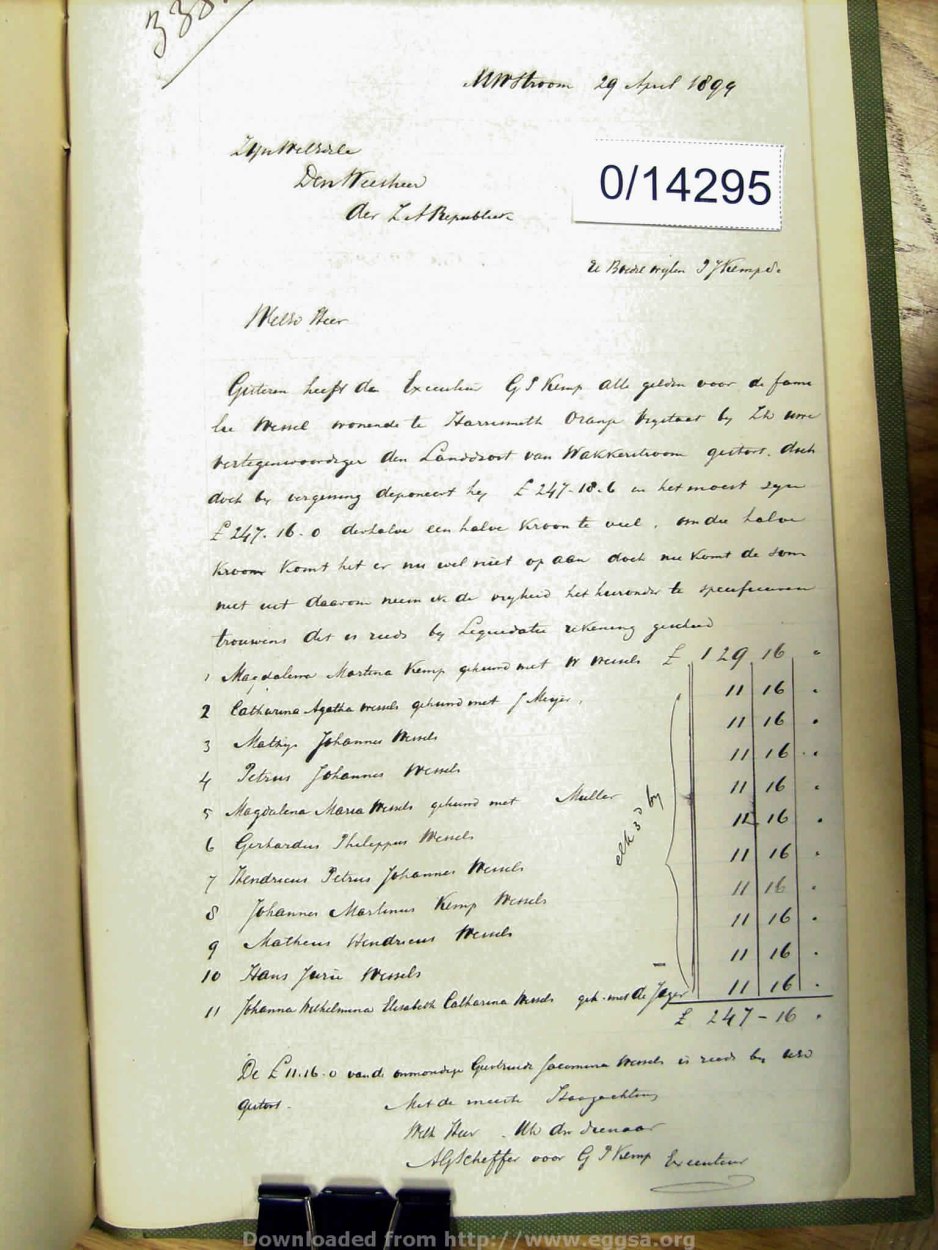 338
MWStroom 29 April 1899
ZynWelEdele
Den Weesheer
der Z A Republiek
0/14295
Boedel wylen P J Kemp
WelEd Heer
Gisteren heeft de Executeur G P Kemp alle gelden voor de fami
lie Wessel wonende te Harrismith Oranje Vrystaat by
vertegenwoordiger den Landdrost van Wakkerstroom gestort, doch
doch by vergissing deponeert hy £ 247-18.6 en het moest zyn
£ 247. 16. 0 derhalve een halve Kroon te veel, om die halve
Kroon Komt het er nu wel niet op aan doch nu Komt de som
niet uit daarom neem ik de vryheid het hieronder te specificeeren
trouwens dit is reeds by Liquidatie rekening gedaan
1 Magdalena Martina Kemp gehuwd met W Wessels £ 129 16 "
2 Catharina Agatha Wessels gehuwd met J Meyer, 11 16 "
3 Mathys Johannes Wessels 11 16 "
4 Petrus Johannes Wessels 11 16 "
5 Magdalena Maria Wessels gehuwd met Muller 11 16 "
6 Gerhardus Philippus Wessels 11 16 "
7 Hendricus Petrus Johannes Wessels 11 16 "
8 Johannes Martinus Kemp Wessels 11 16 "
9 Matheus Hendricus Wessels 11 16 "
10 Hans Jurie Wessels 11 16 "
11 Johanna Wilhelmina Elisabeth Catharina Wessels geh. met de Jager 11 16 "
elk
£ 247 - 16 "
De £ 11.16.0 van de onmondige Geertruida Jacomina Wessels is reeds by
gestort.
Met de meeste Hoogachting
WelEd Heer. Uw dw dienaar
AGScheffer voor G P Kemp Executeur
Downloaded from http://www.eggsa.org